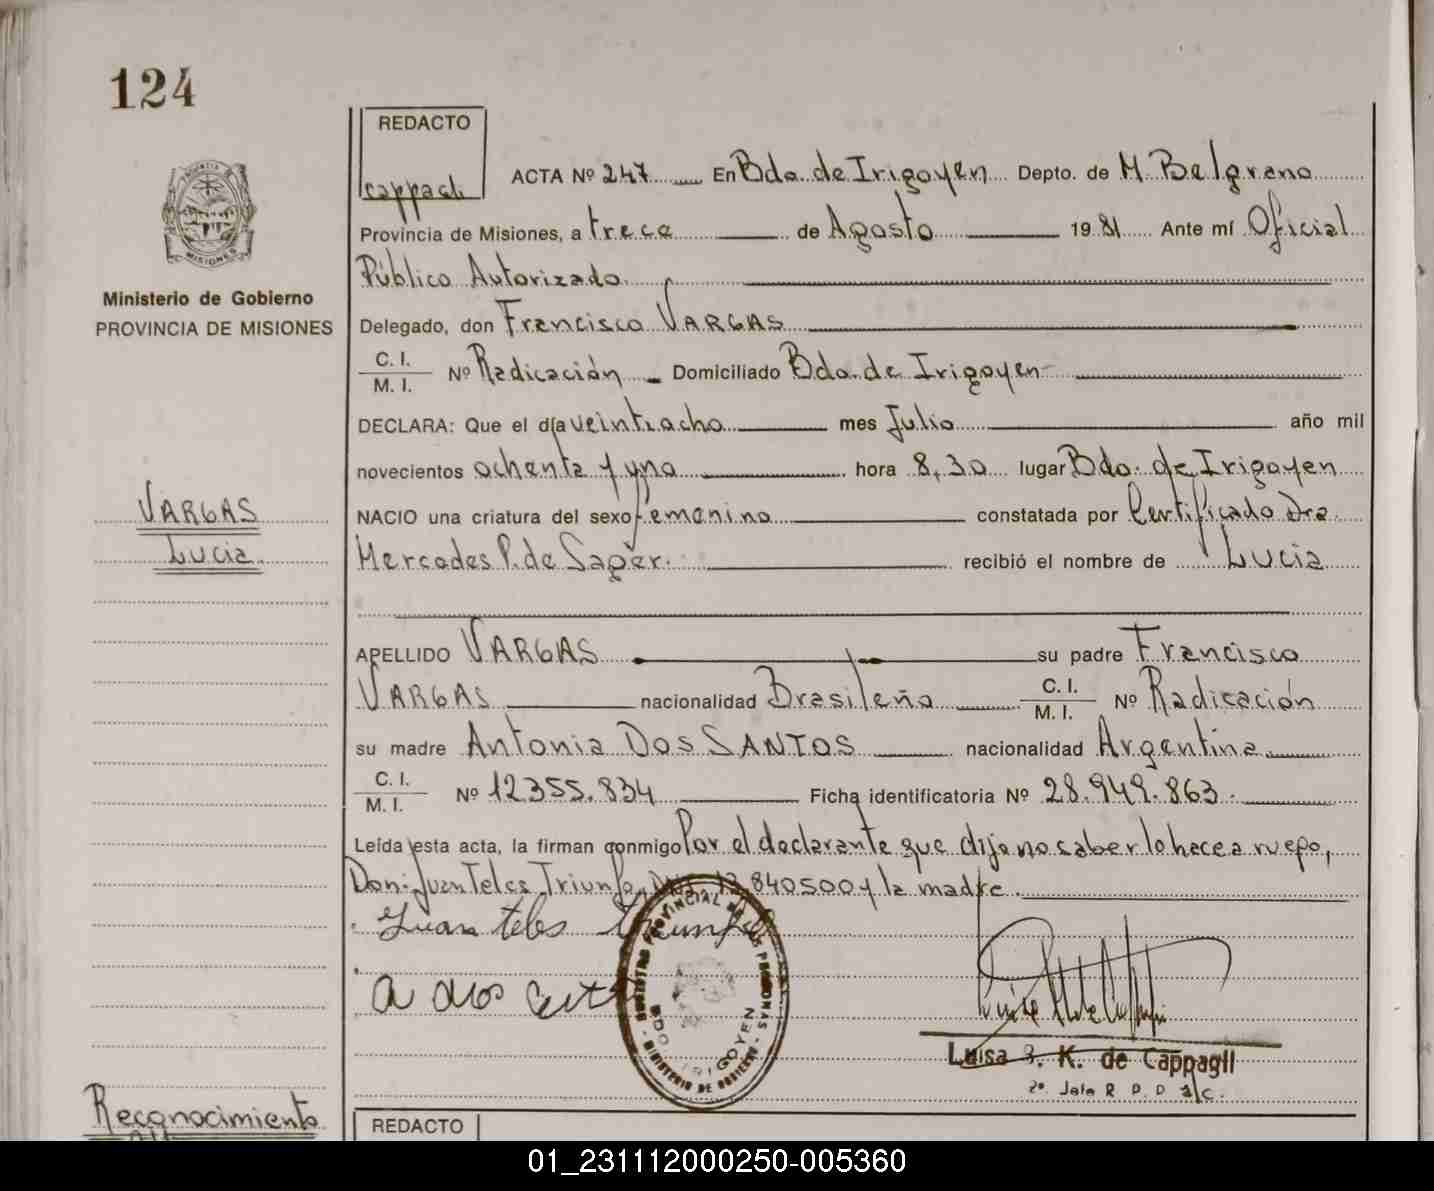 124
REDACTO
cappagli
ACTA Nº 247 En Bdo. de Irigoyen Depto. de M. Belgrano
Provincia de Misiones, a trece de Agosto 1981 Ante mí Oficial
Público Autorizado
Delegado, don Francisco VARGAS
C. I.
M. I. Nº Radicación Domiciliado Bdo. de Irigoyen
DECLARA: Que el día veintiocho mes Julio año mil
novecientos ochenta y uno hora 8,30 lugar Bdo. de Irigoyen
NACIO una criatura del sexo femenino constatada por Certificado Dra
Mercedes P. de Saper. recibió el nombre de Lucia
APELLIDO VARGAS su padre Francisco
VARGAS nacionalidad Brasileña C. I.
M. I. Nº Radicación
su madre Antonia DOS SANTOS nacionalidad Argentina
C. I.
M. I. Nº 12355.834 Ficha identificatoria Nº 28.949.863.
Leída esta acta, la firman conmigo Por el declarante que dijo no saber lo hace a ruego,
Don: Juan Teles Triunfo, 12.840500 y la madre.
Juan teles
Luisa K. de Cappagli
2º Jefe R. P. D. a/c.
REGISTRO PROVINCIAL DE LAS PERSONAS
BDO IRIGOYEN
MINISTERIO DE GOBIERNO
PROVINCIA
MISIONES
Ministerio de Gobierno
PROVINCIA DE MISIONES
VARGAS
Lucia
Reconocimiento
REDACTO
01_231112000250-005360